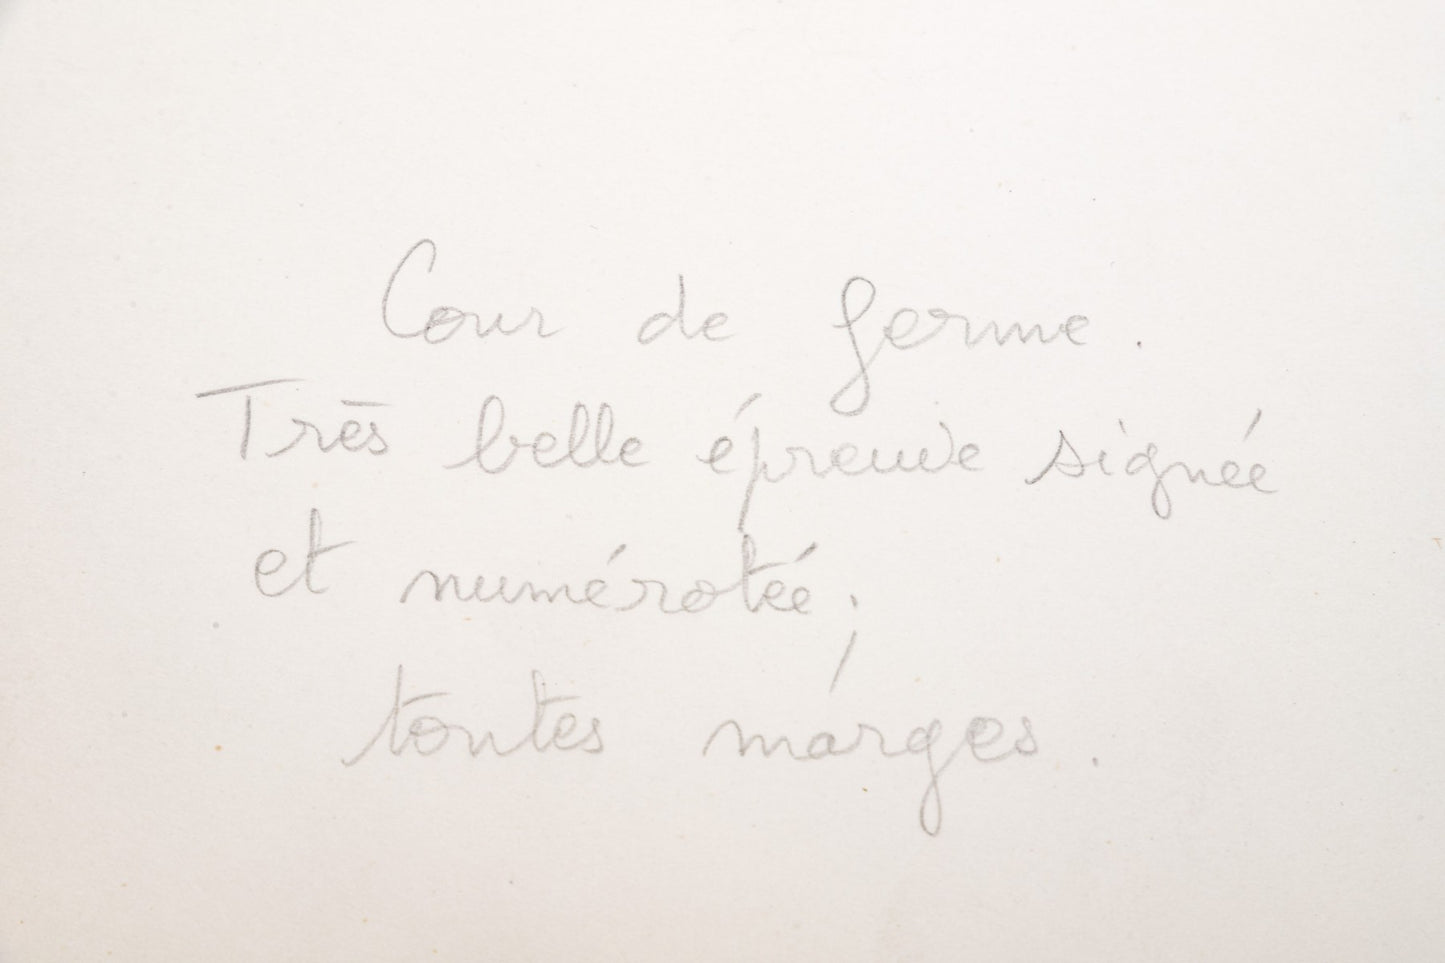 Cour de ferme.
Très belle épreuve signée
et numérotée,
toutes marges.